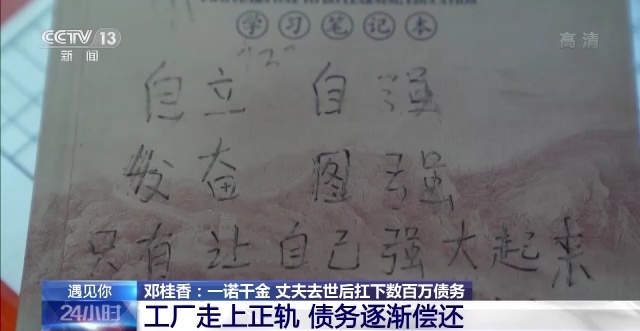 学习笔记本
CCTV 13
新闻
高清
自立 自强
发奋 图强
只有让自己强大起来
遇见你
邓桂香：一诺千金 丈夫去世后扛下数百万债务
24小时
工厂走上正轨 债务逐渐偿还